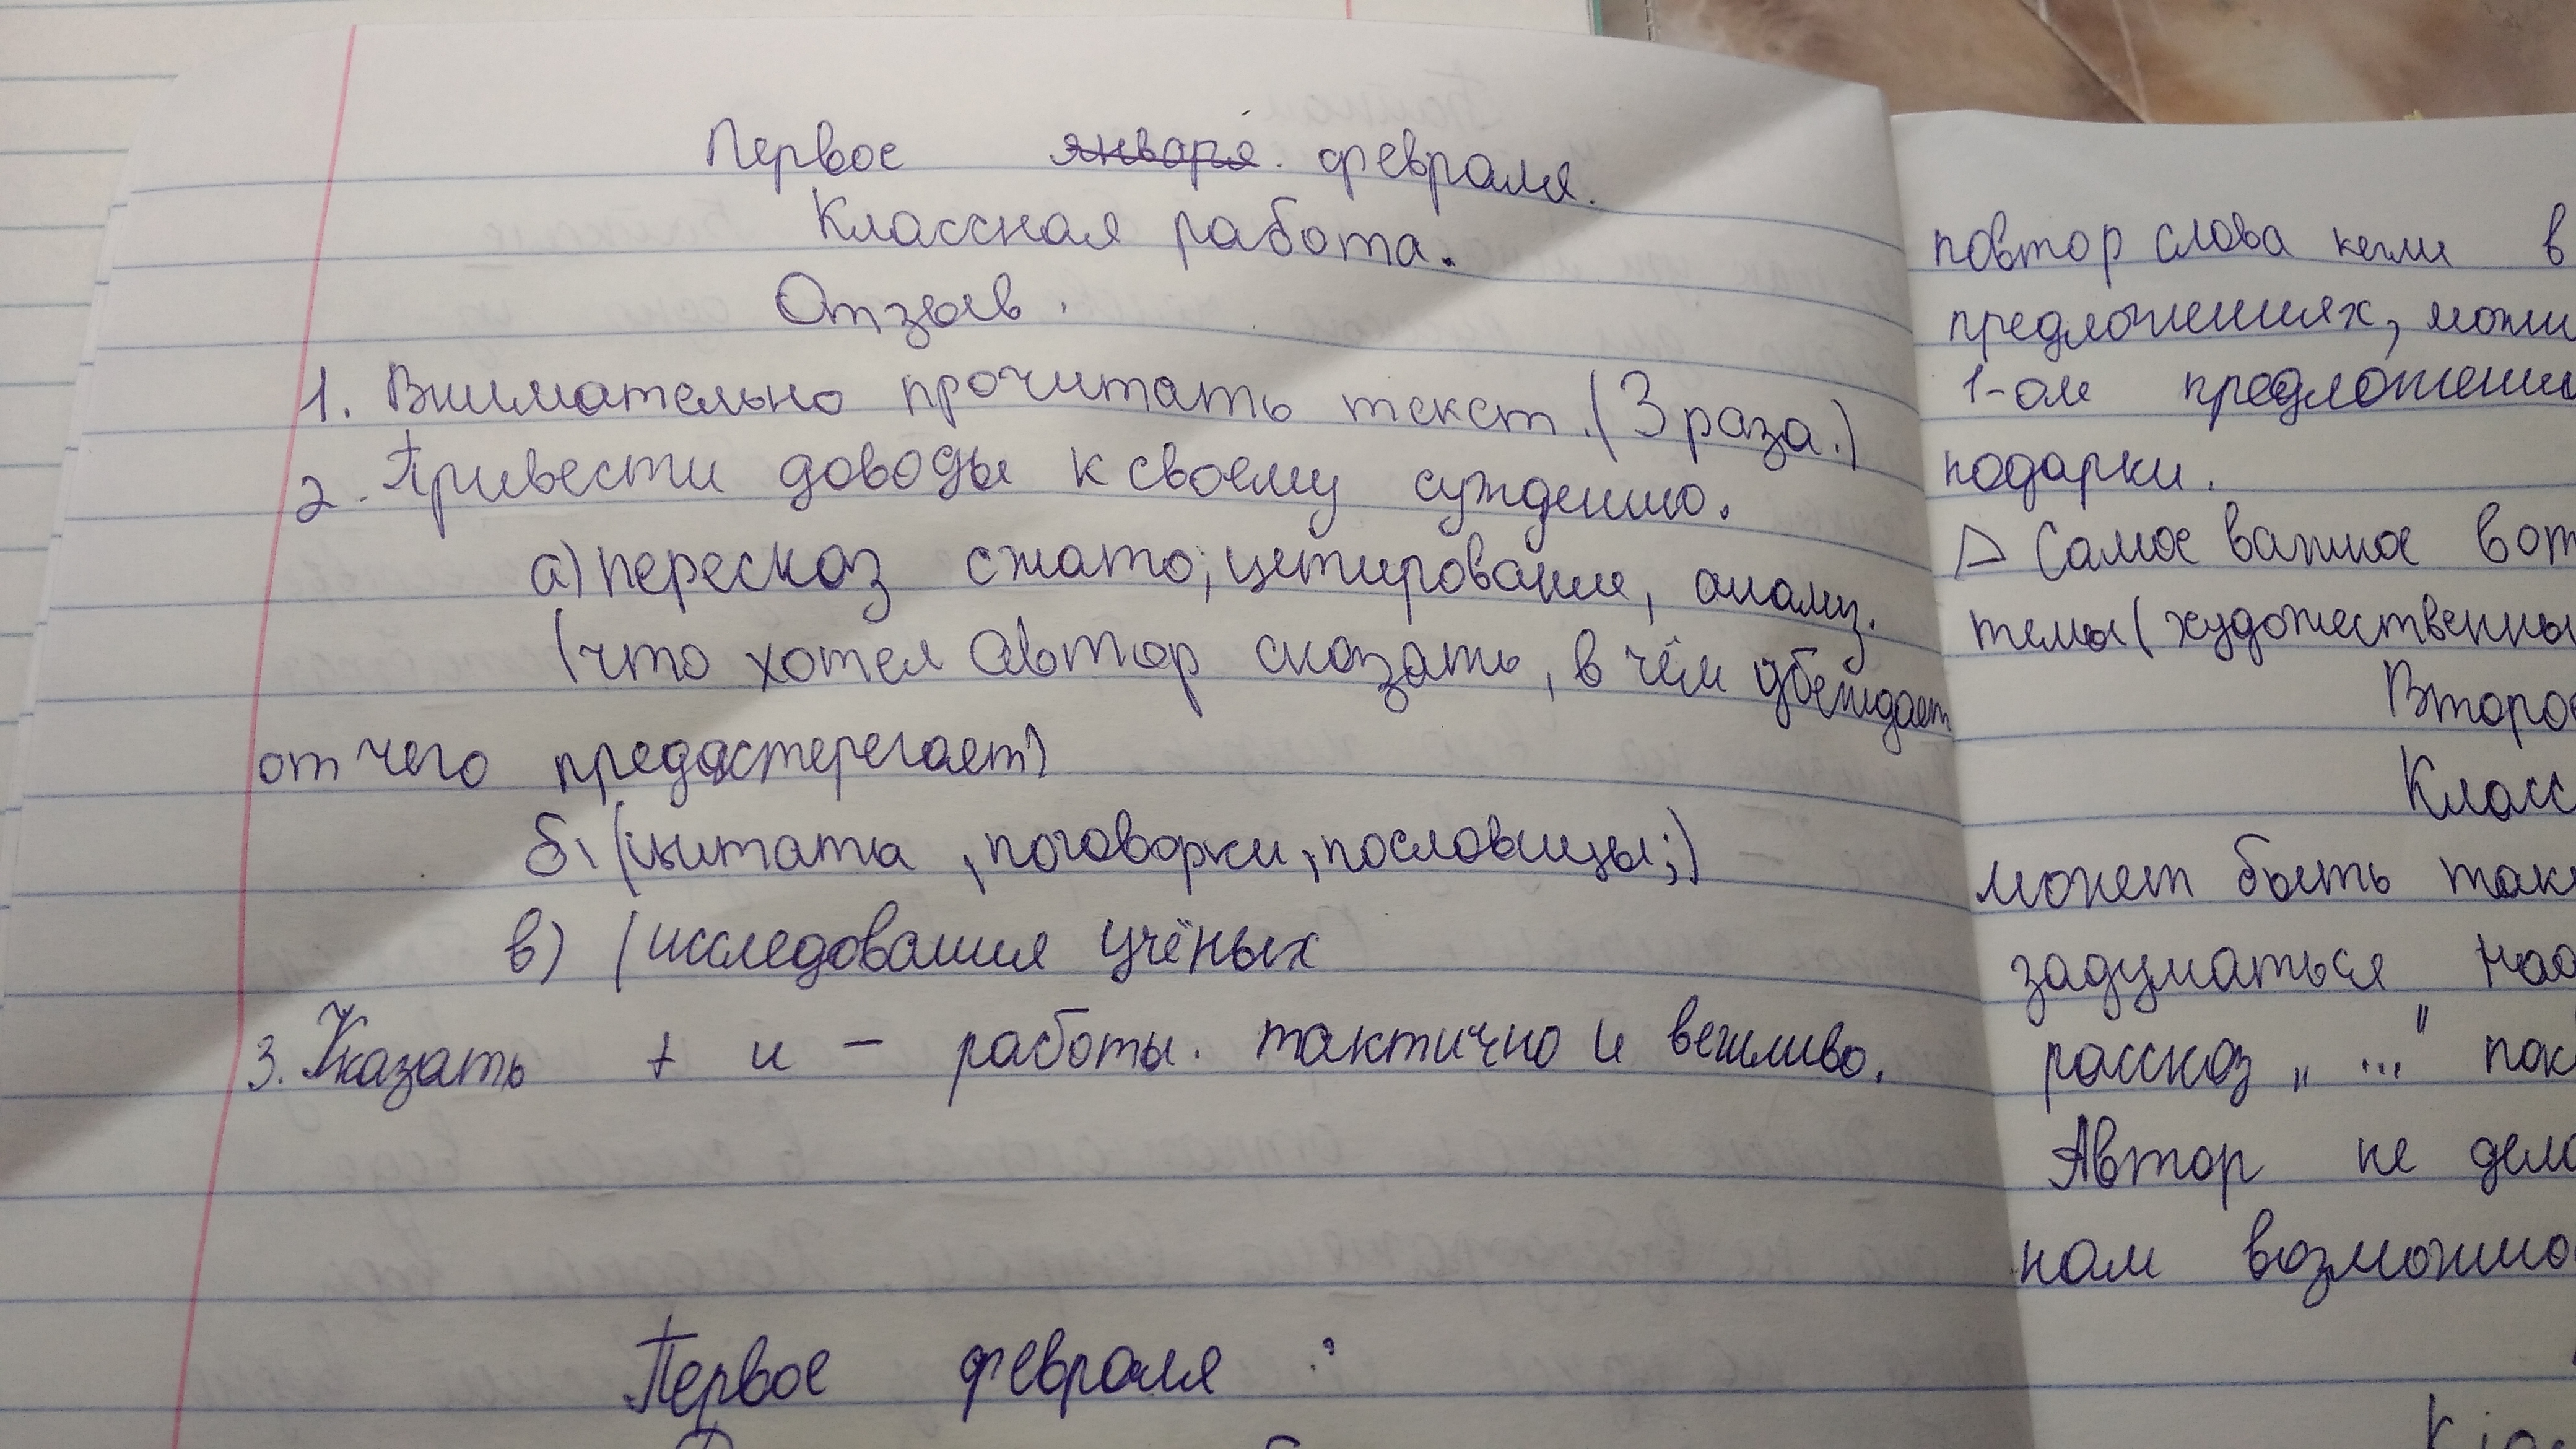 Первое января. февраля.
Классная работа.
Отзыв.
1. Внимательно прочитать текст. (3 раза.)
2. Привести доводы к своему суждению.
а) пересказ сжато; цитирование, анализ.
(что хотел автор сказать, в чём убеждает
от чего предостерегает)
б) (цытата, поговорки, пословицы;)
в) (исследования учёных
3. Указать + и - работы. тактично и вежливо.
Первое февраля.
повтор слова кели в
предложениях, можн
1-ом предложени
подарки.
Самое важное в от
темы (художественны
Второе
Класс
может быть так
задуматься над
рассказ „ ... " пок
Автор не дела
нам возможно